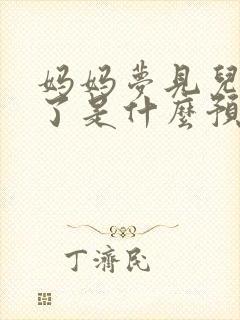 妈妈夢見兒
了是什麼預
丁濟民